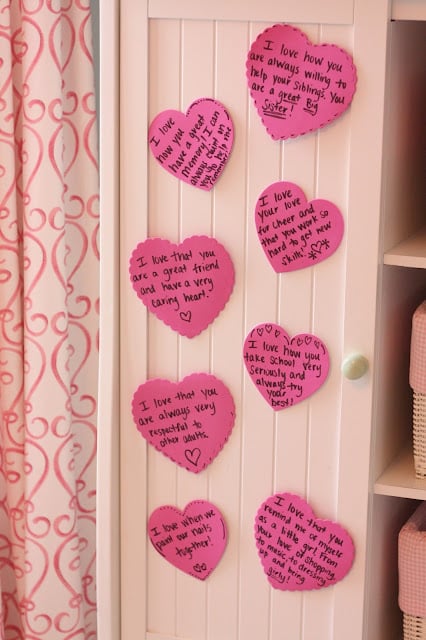 I love how you
are always willing to
help your Siblings. You
are a great Big
Sister!
I love
how you
have a great
memory! I can
always count on
you to help me
remember!
I love
your love
for cheer and
that you work so
hard to get new
skills!
I love that you
are a great friend
and have a very
caring heart.
I love how you
take school very
seriously and
always try
your
best!
I love that you
are always very
respectful to
other adults.
I love when we
paint our nails
together!
I love that you
remind me of myself
as a little girl. From
your love of shopping,
to music, to dressing
up and being
girly!